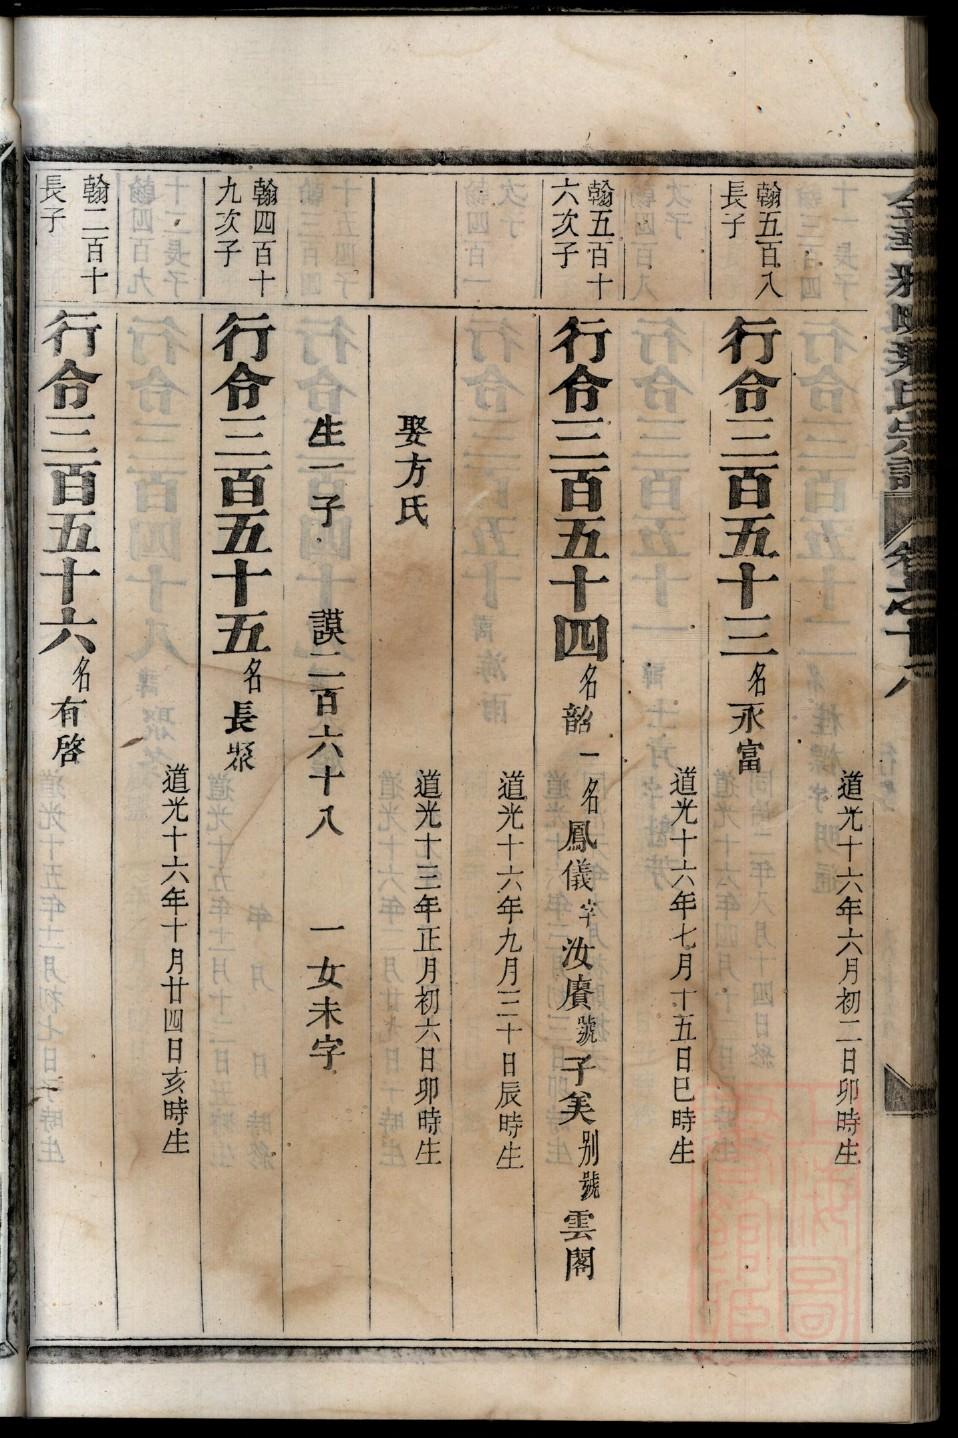 道光十六年六月初二日卯時生
翰五百八
長子
行令三百五十三名永富
道光十六年七月十五日巳時生
翰五百十
六次子
行令三百五十四名韶一名鳳儀字汝賡號子美别號雲閣
道光十六年九月三十日辰時生
娶方氏
道光十三年正月初六日卯時生
生一子 謨二百六十八 一女未字
翰四百十
九次子
行令三百五十五名長聚
道光十六年十月廿四日亥時生
翰二百十
長子
行令三百五十六名有啓